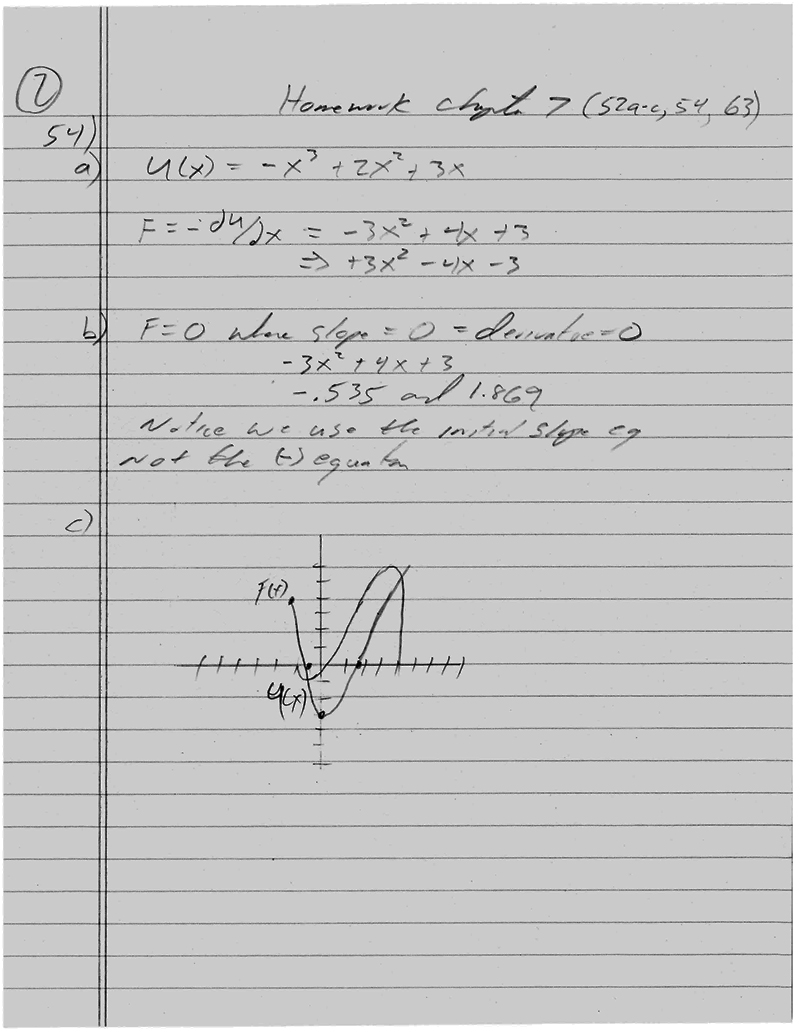 2
Homework chapter 7 (52a-c, 54, 63)
54)
a) U(x) = -x³ + 2x² + 3x
F = -dU/dx = -3x² + 4x + 3
⇒ +3x² - 4x - 3
b) F = 0 where slope = 0 = derivative = 0
-3x² + 4x + 3
-.535 and 1.869
Notice we use the initial slope eq
Not the (-) equation
c)
F(x)
U(x)